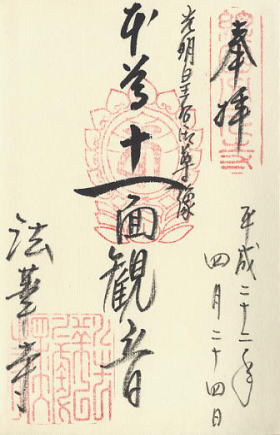 奉拝
光明皇后御尊像
本尊十一面観音
平成二十二年
四月二十四日
法華寺